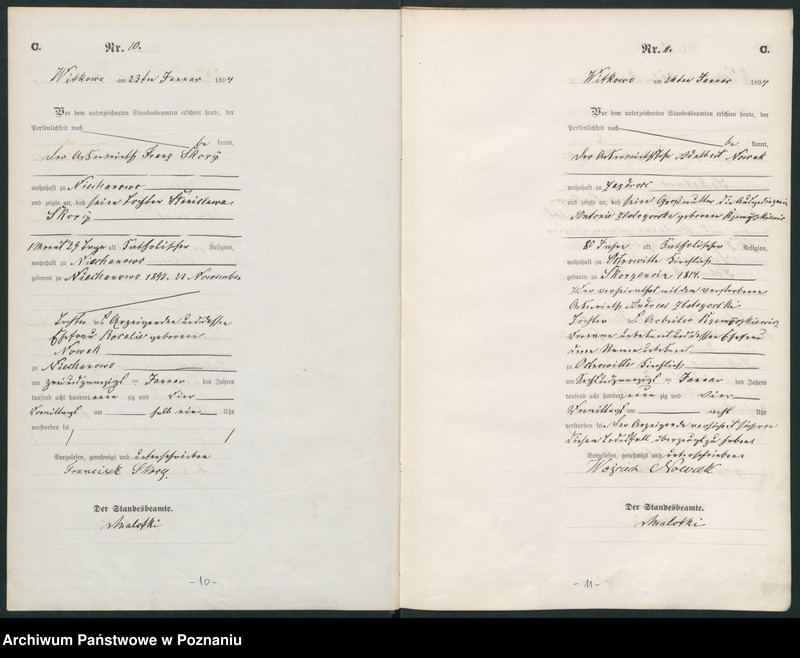 C. Nr. 10.
Witkowo am 23ten Januar 1894
Vor dem unterzeichneten Standesbeamten erschien heute, der
Persönlichkeit nach
be kannt,
der Ackerwirth Franz Skory
wohnhaft zu Niechanowo
und zeigte an, daß seine Tochter Stanislawa
Skory
1 Monat 29 Tage alt Katholischer Religion,
wohnhaft zu Niechanowo
geboren zu Niechanowo 1893. 23 November
Tochter des Anzeigenden und dessen
Ehefrau Rosalie geborenen
Nowak
zu Niechanowo
am zwei und zwanzigsten Januar des Jahres
tausend acht hundert neun zig und vier
Vormittags um halb ein Uhr
verstorben sei
Vorgelesen, genehmigt und unterschrieben
Franciszek Skory
Der Standesbeamte.
Malotki
- 10 -
Nr. 11. C.
Witkowo am 26ten Januar 1894
Vor dem unterzeichneten Standesbeamten erschien heute, der
Persönlichkeit nach
be kannt,
der Ackerwirthssohn Adalbert Nowak
wohnhaft zu
und zeigte an, daß seine Großmutter die
Antonie geborene
80 Jahre alt Katholischer Religion,
wohnhaft zu Ostrowitte Kirchlich
geboren zu Skorzencin 1814.
war verheirathet mit dem verstorbenen
Ackerwirth Andreas
Tochter des Arbeiter
Vorname unbekannt und dessen Ehefrau
deren Namen unbekannt
zu Ostrowitte Kirchlich
am Januar des Jahres
tausend acht hundert neun zig und vier
Vormittags um acht Uhr
verstorben sei. Der Anzeigende versichert
diesem Todesfall überzeugt zu haben
Vorgelesen, genehmigt und unterschrieben
Wojciech Nowak
Der Standesbeamte.
Malotki
- 11 -
Archiwum Państwowe w Poznaniu